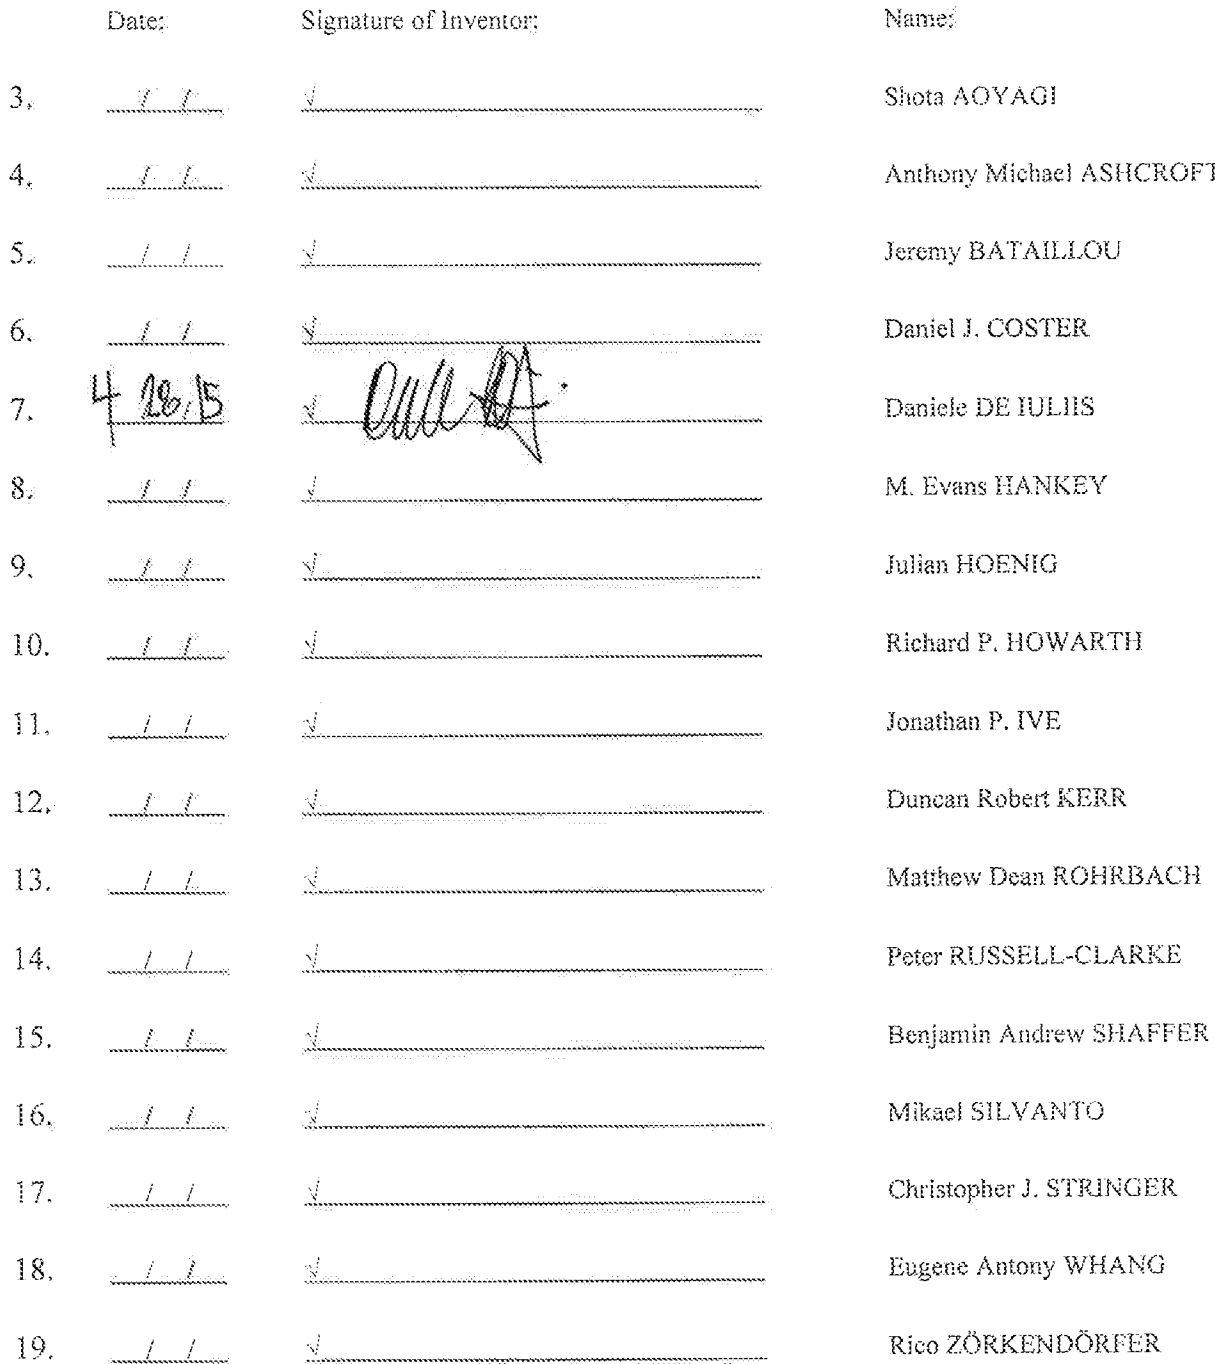 Date: Signature of Inventor: Name:
3. / / √ Shota AOYAGI
4. / / √ Anthony Michael ASHCROFT
5. / / √ Jeremy BATAILLOU
6. / / √ Daniel J. COSTER
7. 4 / 28 / 15 √ Daniele DE IULIIS
8. / / √ M. Evans HANKEY
9. / / √ Julian HOENIG
10. / / √ Richard P. HOWARTH
11. / / √ Jonathan P. IVE
12. / / √ Duncan Robert KERR
13. / / √ Matthew Dean ROHRBACH
14. / / √ Peter RUSSELL-CLARKE
15. / / √ Benjamin Andrew SHAFFER
16. / / √ Mikael SILVANTO
17. / / √ Christopher J. STRINGER
18. / / √ Eugene Antony WHANG
19. / / √ Rico ZÖRKENDÖRFER